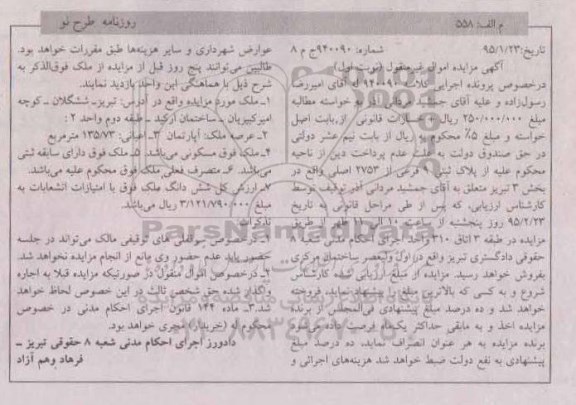 م الف: ۵۵۸
روزنامه طرح نو
تاریخ:۹۵/۱/۲۳ شماره: ۹۴۰۰۹۰ج م ۸
آگهی مزایده اموال غیرمنقول (نوبت اول)
درخصوص پرونده اجرایی کلاسه ۹۴۰۰۹۰ له آقای امیررضا
رسول‌زاده و علیه آقای جمشید مردانی آذر به خواسته مطالبه
مبلغ ۲۵۰/۰۰۰/۰۰۰ ریال + خسارات قانونی از بابت اصل
خواسته و مبلغ ۵% محکوم به ریال از بابت نیم عشر دولتی
در حق صندوق دولت به علت عدم پرداخت دین از ناحیه
محکوم علیه از پلاک ثبتی ۹ فرعی از ۲۷۵۳ اصلی واقع در
بخش ۳ تبریز متعلق به آقای جمشید مردانی آذر توقیف توسط
کارشناس ارزیابی، که پس از طی مراحل قانونی به تاریخ
۹۵/۲/۲۳ روز پنجشنبه از ساعت ۱۰ الی ۱۱ ظهر از طریق
مزایده در طبقه ۳ اتاق ۳۱۰ واحد اجرای احکام مدنی شعبه ۸
حقوقی دادگستری تبریز واقع در اول ولیعصر ساختمان مرکزی
بفروش خواهد رسید. مزایده از مبلغ ارزیابی شده کارشناس
شروع و به کسی که بالاترین مبلغ را پیشنهاد نماید، فروخته
خواهد شد و ده درصد مبلغ پیشنهادی فی‌المجلس از برنده
مزایده اخذ و به مابقی حداکثر یک‌ماه فرصت داده می‌شود
برنده مزایده به هر عنوان انصراف نماید، ده درصد مبلغ
پیشنهادی به نفع دولت ضبط خواهد شد هزینه‌های اجرائی و
عوارض شهرداری و سایر هزینه‌ها طبق مقررات خواهد بود.
طالبین می‌توانند پنج روز قبل از مزایده از ملک فوق‌الذکر به
شرح ذیل با هماهنگی این واحد بازدید نمایند.
۱ـ ملک مورد مزایده واقع در آدرس: تبریزـ ششگلان ـ کوچه
امیرکبیریان ـ ساختمان ارکید ـ طبقه دوم واحد ۲ :
۲ـ عرصه ملک: آپارتمان ۳ـ اعیانی: ۱۳۵/۷۳ مترمربع
۴ـ ملک فوق مسکونی می‌باشد. ۵ـ ملک فوق دارای سابقه ثبتی
می‌باشد. ۶ـ متصرف فعلی ملک فوق محکوم علیه می‌باشد.
۷ـ ارزش کل شش دانگ ملک فوق با امتیازات انشعابات به
مبلغ ۳/۱۲۱/۷۹۰/۰۰۰ ریال می‌باشد.
تذکرات:
۱ـ درخصوص توقیفی مالک می‌تواند در جلسه
حضور یابد عدم حضور وی مانع از انجام مزایده نخواهد شد.
۲ـ درخصوص اموال منقول در صورتیکه مزایده قبلا به اجاره
واگذار شده حق شخص ثالث در این خصوص لحاظ خواهد
شد.۳ـ ماده ۱۴۴ قانون اجرای احکام مدنی در خصوص
محکوم له (خریدار) مجری خواهد بود.
دادورز اجرای احکام مدنی شعبه ۸ حقوقی تبریز ـ
فرهاد وهم آزاد
ParsNamadData